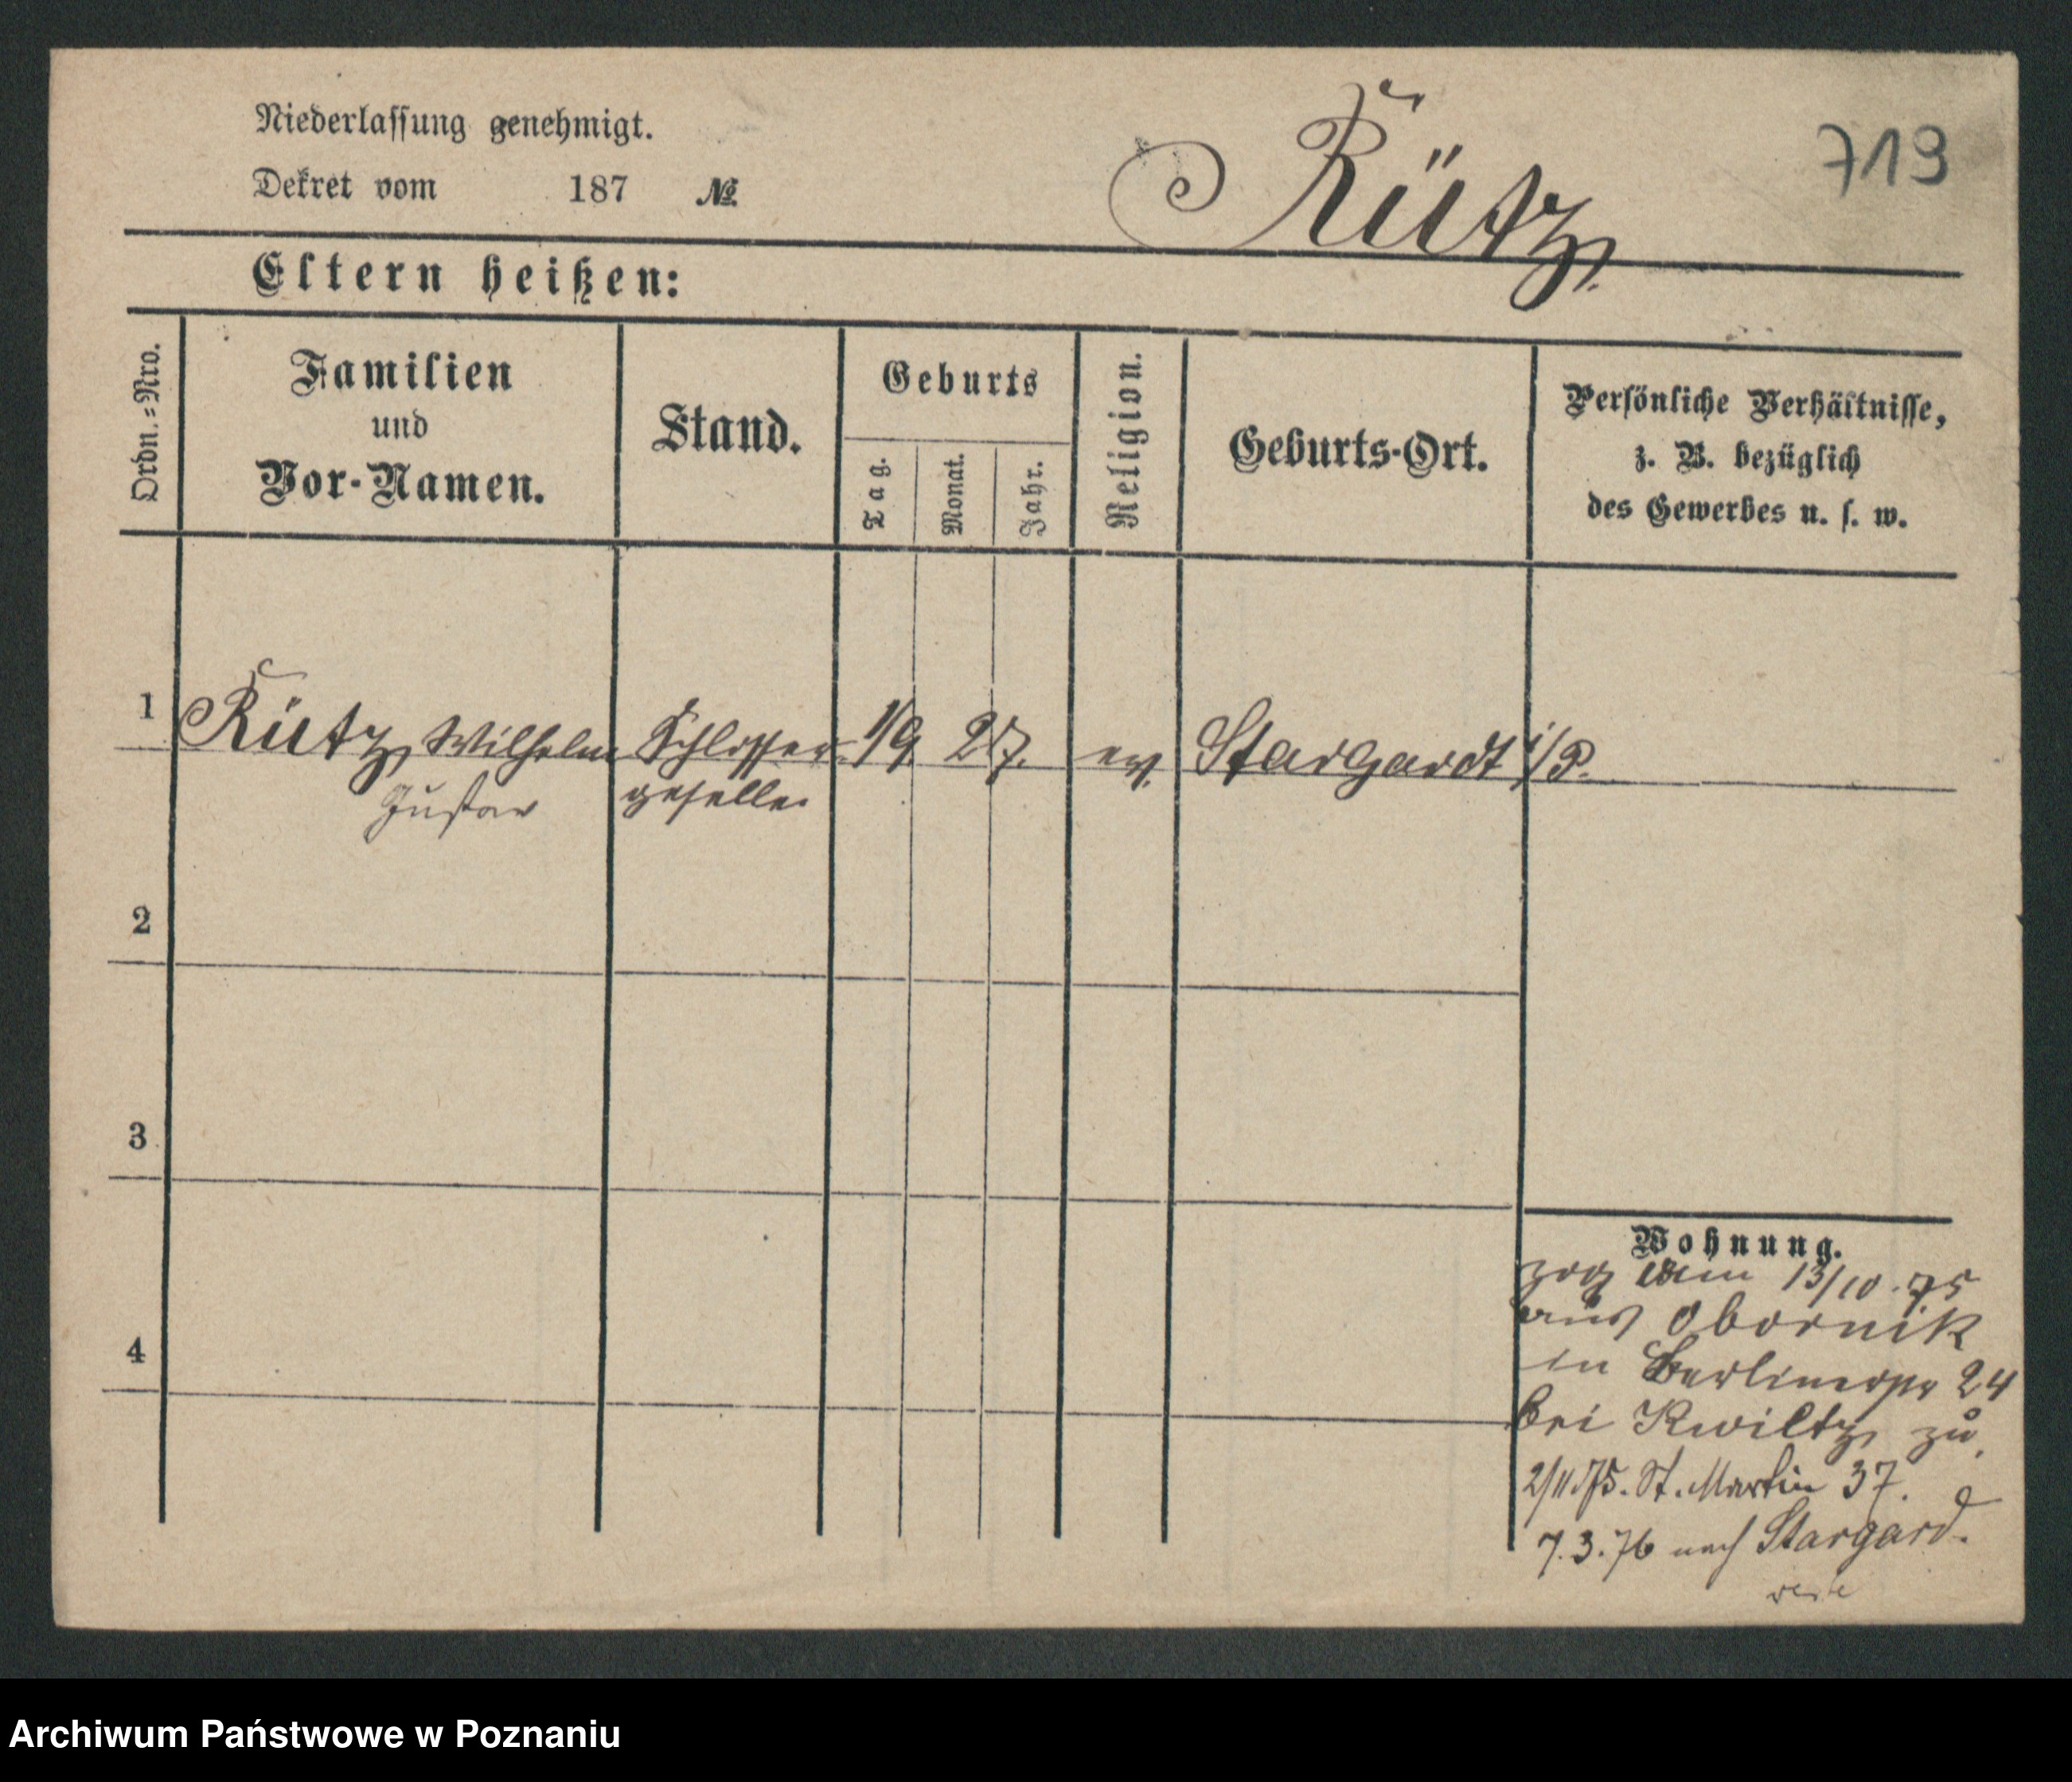 Niederlassung genehmigt.
Dekret vom 187 №
Rütz
719
Eltern heißen:
Ordn.=Nro.
Familien
und
Vor-Namen.
Stand.
Geburts
Tag.
Monat.
Jahr.
Religion.
Geburts-Ort.
Persönliche Verhältnisse,
z. B. bezüglich
des Gewerbes u. s. w.
1 Rütz, Wilhelm Schlosser 1/9 27. ev. Stargardt i/P.
Gustav geselle.
2
3
4
Wohnung.
zog am 13/10.75
aus Obornik
in Berlinerstr 24
bei Kwiltz zu,
2/11.75. St. Martin 37.
7.3.76 nach Stargard.